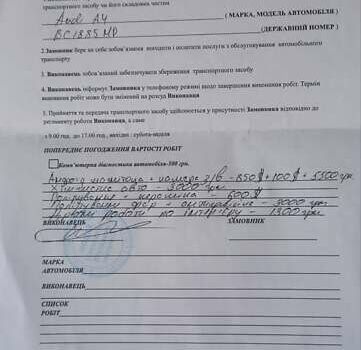 транспортного засобу чи його складових частин
Audi A4 ( МАРКА, МОДЕЛЬ АВТОМОБІЛЯ )
BC1885MP (ДЕРЖАВНИЙ НОМЕР )
2.Замовник бере на себе зобов'язання оплатити послуги з обслуговування автомобільного
транспорту
3. Виконавець зобов'язаний забезпечувати збереження транспортного засобу
4. Виконавець інформує Замовника у телефонному режимі щодо завершення виконання робіт. Термін
виконання робіт може бути змінений на розсуд Виконавця
5. Приймання та передача транспортного засобу здійснюється у присутності Замовника відповідно до
регламенту роботи Виконавця, а саме
з 9.00 год. до 17.00 год., вихідні : субота-неділя
ПОПЕРЕДНЄ ПОГОДЖЕННЯ ВАРТОСТІ РОБІТ
Комп'ютерна діагностика автомобіля-500 грн.
б/в - 850 $ + 100 $ + 5500 грн.
Хімчистка авто - 3000 грн
- 600 $
- 3000 грн
роботи по - 1500 грн
ВИКОНАВЕЦЬ ЗАМОВНИК
МАРКА
АВТОМОБІЛЯ
ВИКОНАВЕЦЬ
СПИСОК
РОБІТ